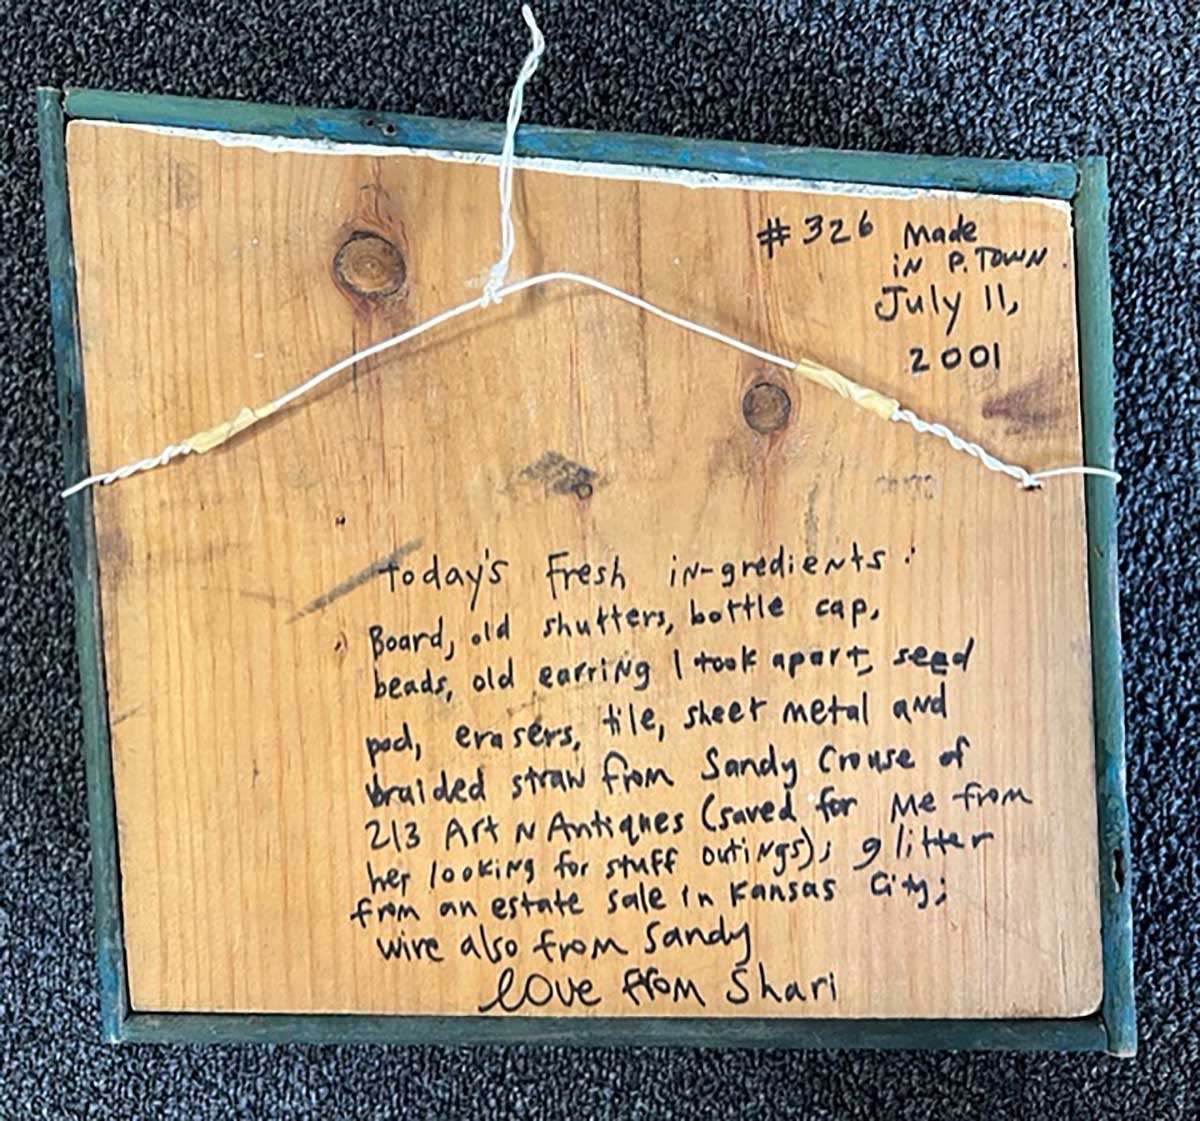 #326 Made
in P.Town.
July 11,
2001
Today's Fresh in-gredients:
Board, old shutters, bottle cap,
beads, old earring I took apart, seed
pod, erasers, tile, sheet metal and
braided straw from Sandy Crouse of
213 Art N Antiques (saved for me from
her looking for stuff outings); glitter
from an estate sale in Kansas City;
wire also from Sandy
love from Shari